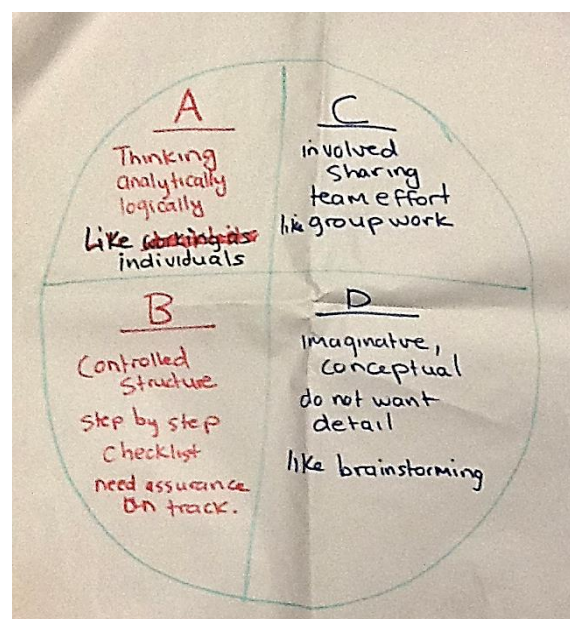 A
Thinking
analytically
logically
Like working as
individuals
C
involved
Sharing
team effort
like group work
B
Controlled
Structure
step by step
Checklist
need assurance
on track.
D
imaginative,
conceptual
do not want
detail
like brainstorming